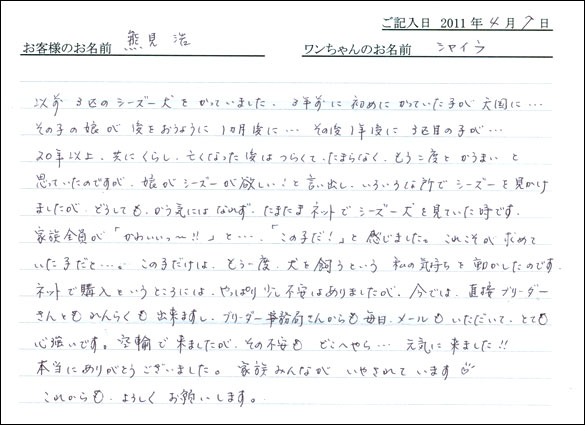 ご記入日 2011年4月9日
お客様のお名前 熊見 浩 ワンちゃんのお名前 シャイラ
以前 3匹のシーズー犬をかっていました。3年前に初めにかっていた子が天国に…
その子の娘が後をおうように1カ月後に… その後1年後に3匹目の子が…
20年以上、共にくらし、亡くなった後はつらくて、たまらなく、もう二度とかうまいと
思っていたのですが、娘がシーズーが欲しい!と言い出し、いろいろな所でシーズーを見かけ
ましたが、どうしても、かう気にはなれず、たまたまネットでシーズー犬を見ていた時です。
家族全員が「かわいいっ〜!!」と…、「この子だ!」と感じました。これこそが求めて
いた子だと…。この子だけは、もう一度、犬を飼うという私の気持ちを動かしたのです。
ネットで購入というところには、やっぱり少し不安はありましたが、今では、直接ブリーダー
さんともみんらくも出来ますし、ブリーダー事務局さんからも毎日、メールもいただいて、とても
心強いです。空輸で来ましたが、その不安もどこへやら… 元気に来ました!!
本当にありがとうございました。家族みんながいやされています
これからも、よろしくお願いします。